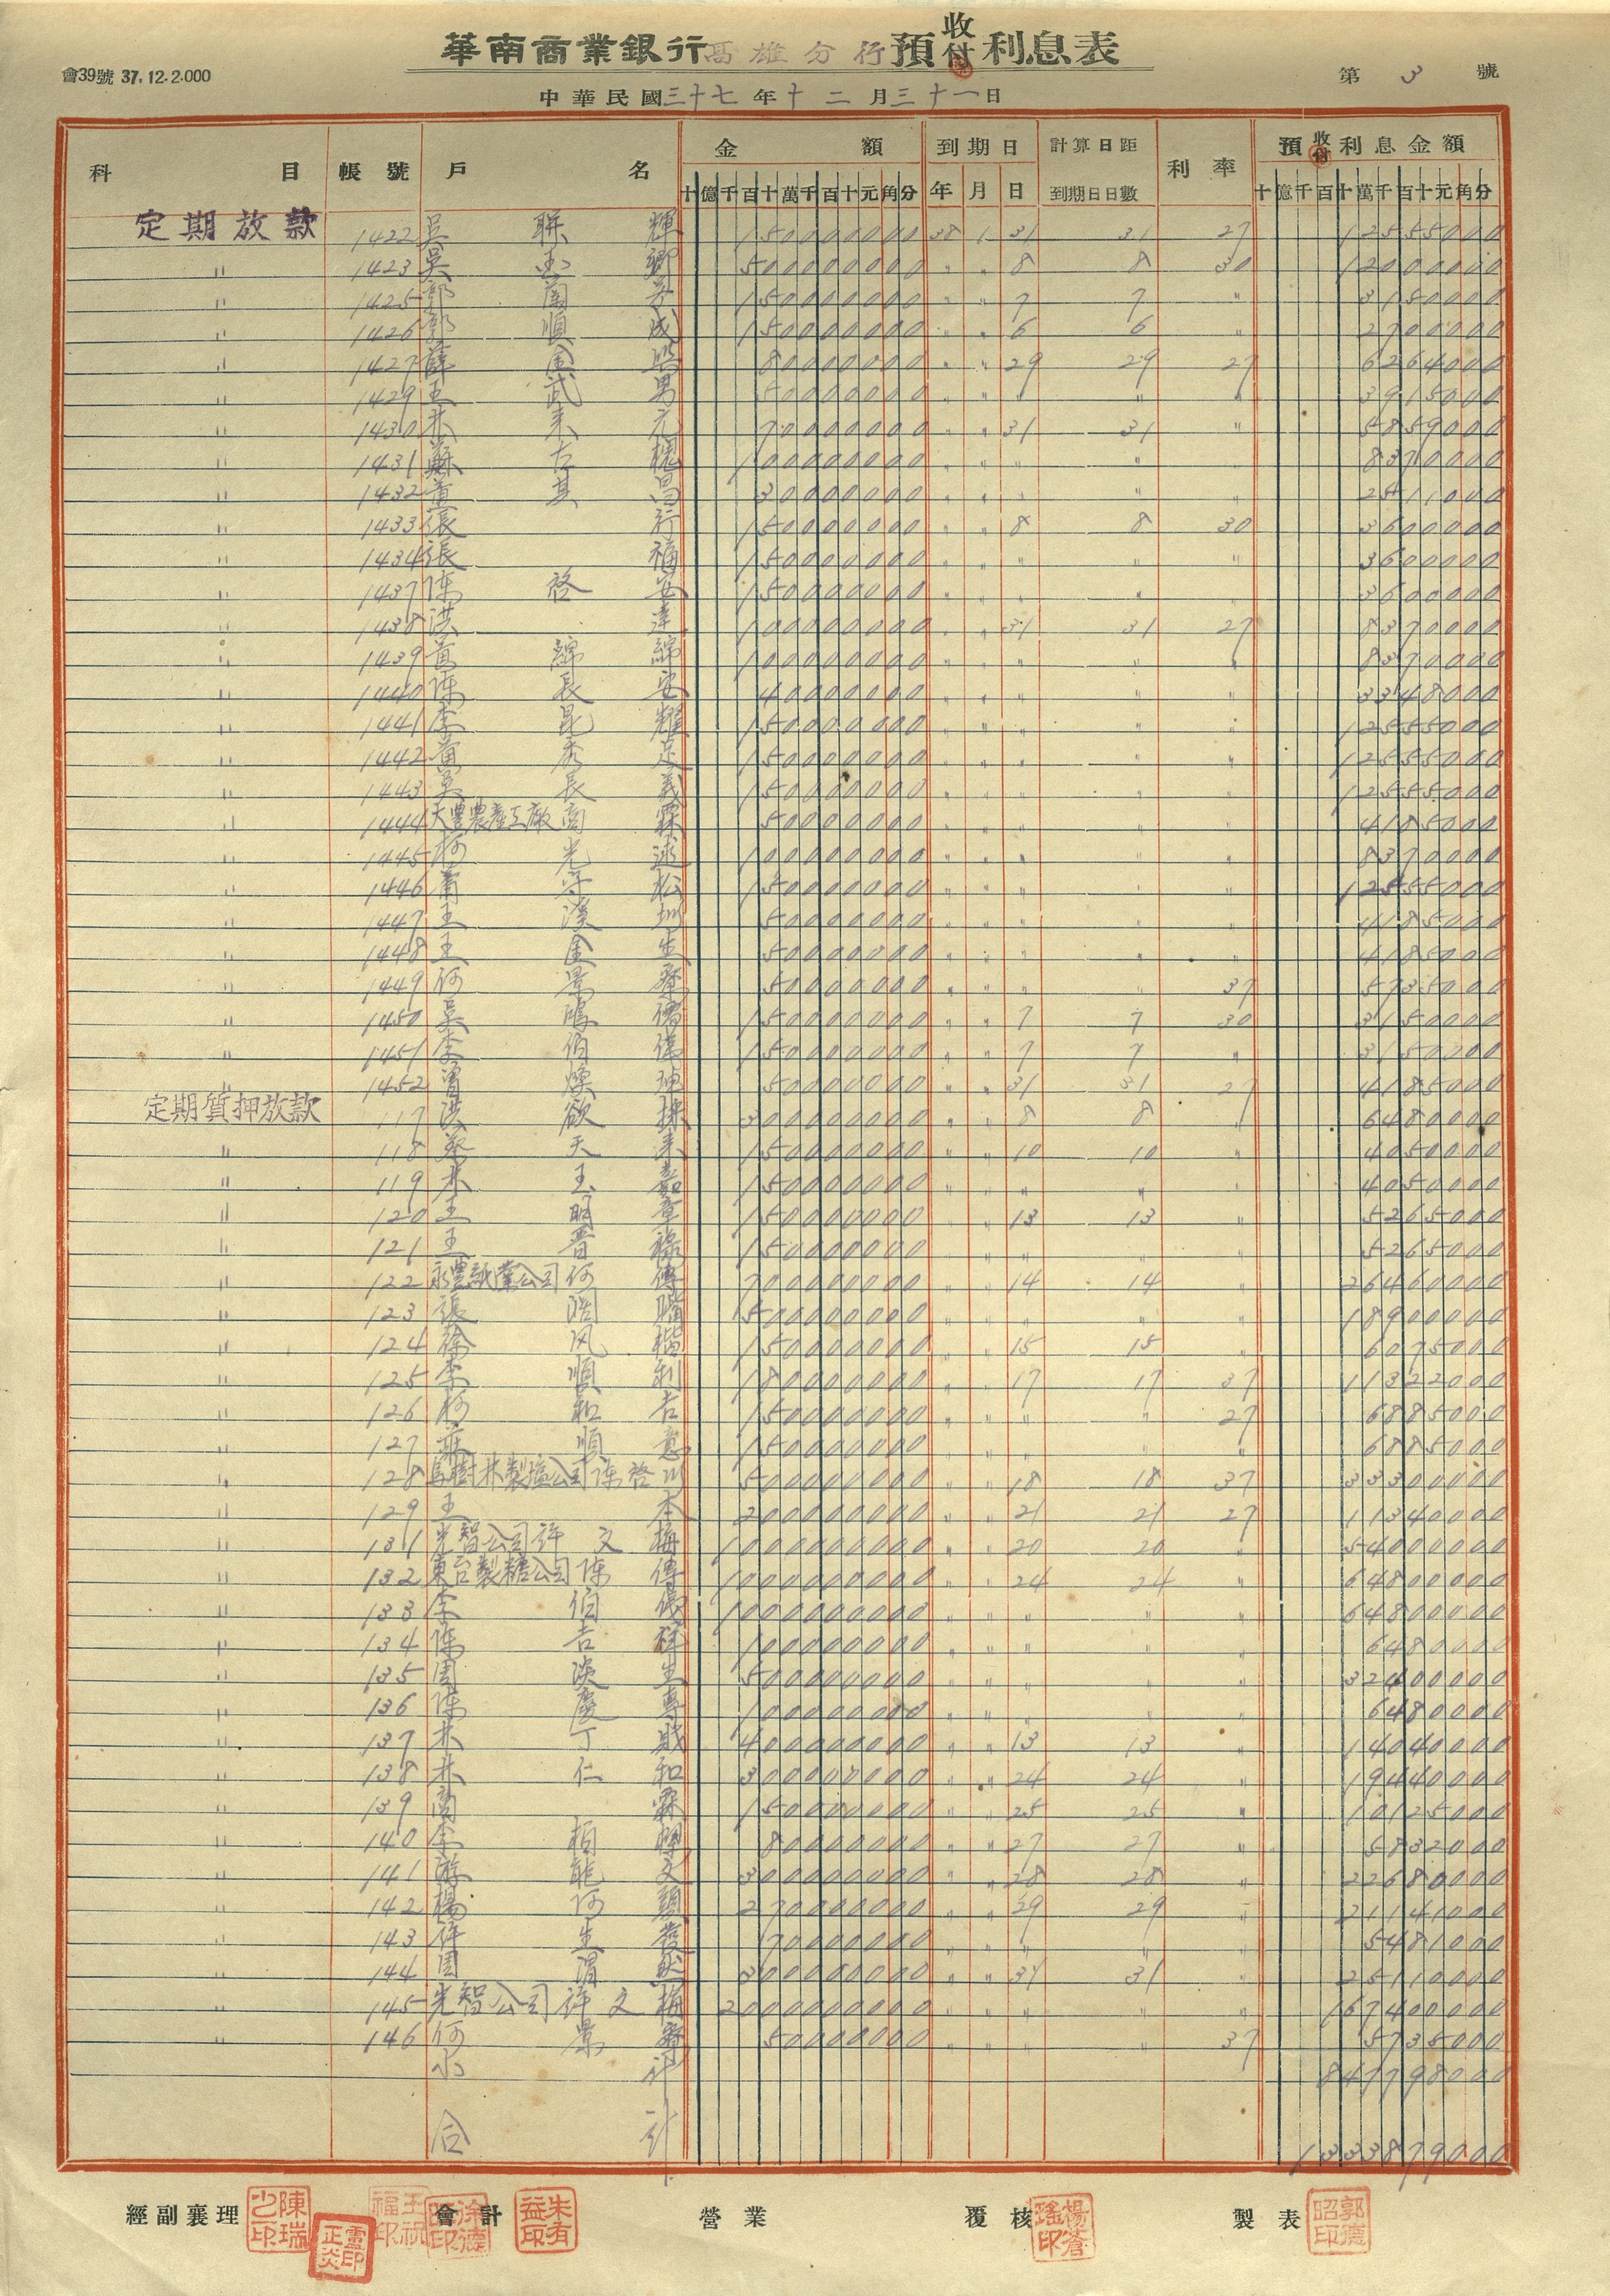 華南商業銀行高雄分行預收付利息表
會39號 37.12.2.000
第 3 號
中華民國三十七年十二月三十一日
科目 帳號 戶名 金額 到期日 計算日距 利率 預收付利息金額
十億千百十萬千百十元角分 年 月 日 到期日日數 十億千百十萬千百十元角分
定期放款 1422 吳聯輝 150000000 38 1 31 31 27 12555000
〃 1423 吳 卿 500000000 〃 〃 8 8 30 12000000
〃 1425 郭蘭芳 150000000 〃 〃 7 7 〃 3150000
〃 1426 郭順成 150000000 〃 〃 6 6 〃 2700000
〃 1427 薛金 80000000 〃 〃 29 29 27 6264000
〃 1429 王武男 50000000 〃 〃 〃 〃 〃 3915000
〃 1430 林來元 70000000 〃 〃 31 31 〃 5859000
〃 1431 蘇 100000000 〃 〃 〃 〃 〃 8370000
〃 1432 黃其昌 30000000 〃 〃 〃 〃 〃 2511000
〃 1433 張行 150000000 〃 〃 8 8 30 3600000
〃 1434 張福 150000000 〃 〃 〃 〃 〃 3600000
〃 1437 陳啓安 150000000 〃 〃 〃 〃 〃 3600000
〃 1438 洪達 100000000 〃 〃 31 31 27 8370000
〃 1439 黃綿綿 100000000 〃 〃 〃 〃 〃 8370000
〃 1440 陳長安 40000000 〃 〃 〃 〃 〃 3348000
〃 1441 李昆耀 150000000 〃 〃 〃 〃 〃 12555000
〃 1442 黃秀足 150000000 〃 〃 〃 〃 〃 12555000
〃 1443 吳長義 150000000 〃 〃 〃 〃 〃 12555000
〃 1444 天豐農產工廠商霖 50000000 〃 〃 〃 〃 〃 4185000
〃 1445 柯光逑 100000000 〃 〃 〃 〃 〃 8370000
〃 1446 蕭 松 150000000 〃 〃 〃 〃 〃 12555000
〃 1447 王漢圳 50000000 〃 〃 〃 〃 〃 4185000
〃 1448 王金生 50000000 〃 〃 〃 〃 〃 4185000
〃 1449 何景 50000000 〃 〃 〃 〃 37 5735000
〃 1450 吳鴻儒 150000000 〃 〃 7 7 30 3150000
〃 1451 李伯偉 150000000 〃 〃 7 7 〃 3150000
〃 1452 曾 50000000 〃 〃 31 31 27 4185000
定期質押放款 117 洪欲 300000000 〃 〃 8 8 〃 6480000
〃 118 蔡天來 150000000 〃 〃 10 10 〃 4050000
〃 119 林玉嘉 150000000 〃 〃 〃 〃 〃 4050000
〃 120 王明章 150000000 〃 〃 13 13 〃 5265000
〃 121 王晋祿 150000000 〃 〃 〃 〃 〃 5265000
〃 122 永豐紙業公司何傳 700000000 〃 〃 14 14 〃 26460000
〃 123 張 500000000 〃 〃 〃 〃 〃 18900000
〃 124 徐風楷 150000000 〃 〃 15 15 〃 6075000
〃 125 李順利 180000000 〃 〃 17 17 37 11322000
〃 126 柯和吉 150000000 〃 〃 〃 〃 27 6885000
〃 127 莊順意 150000000 〃 〃 〃 〃 〃 6885000
〃 128 烏樹林製塩公司陳啓川 500000000 〃 〃 18 18 37 33300000
〃 129 王本 200000000 〃 〃 21 21 27 11340000
〃 131 光智公司許文梅 1000000000 〃 〃 20 20 〃 54000000
〃 132 東台製糖公司陳傳 1000000000 〃 〃 24 24 〃 64800000
〃 133 李伯儀 1000000000 〃 〃 〃 〃 〃 64800000
〃 134 陳吉祥 100000000 〃 〃 〃 〃 〃 6480000
〃 135 周淡生 500000000 〃 〃 〃 〃 〃 32400000
〃 136 陳慶專 100000000 〃 〃 〃 〃 〃 6480000
〃 137 林丁財 400000000 〃 〃 13 13 〃 14040000
〃 138 林仁和 300000000 〃 〃 24 24 〃 19440000
〃 139 商霖 150000000 〃 〃 25 25 〃 10125000
〃 140 李栢輝 80000000 〃 〃 27 27 〃 5832000
〃 141 游龍文 300000000 〃 〃 28 28 〃 22680000
〃 142 楊河顯 270000000 〃 〃 29 29 〃 21141000
〃 143 許生發 70000000 〃 〃 〃 〃 〃 5481000
〃 144 周渭然 300000000 〃 〃 31 31 〃 25110000
〃 145 光智公司許文梅 2000000000 〃 〃 〃 〃 〃 167400000
〃 146 何景 50000000 〃 〃 〃 〃 37 5735000
小計 847798000
合計 1333879000
經副襄理 會計 營業 覆核 製表
陳瑞 印 雷正炎印 王祝福印 徐德印 朱有益印 楊蒼瑤印 郭德昭印